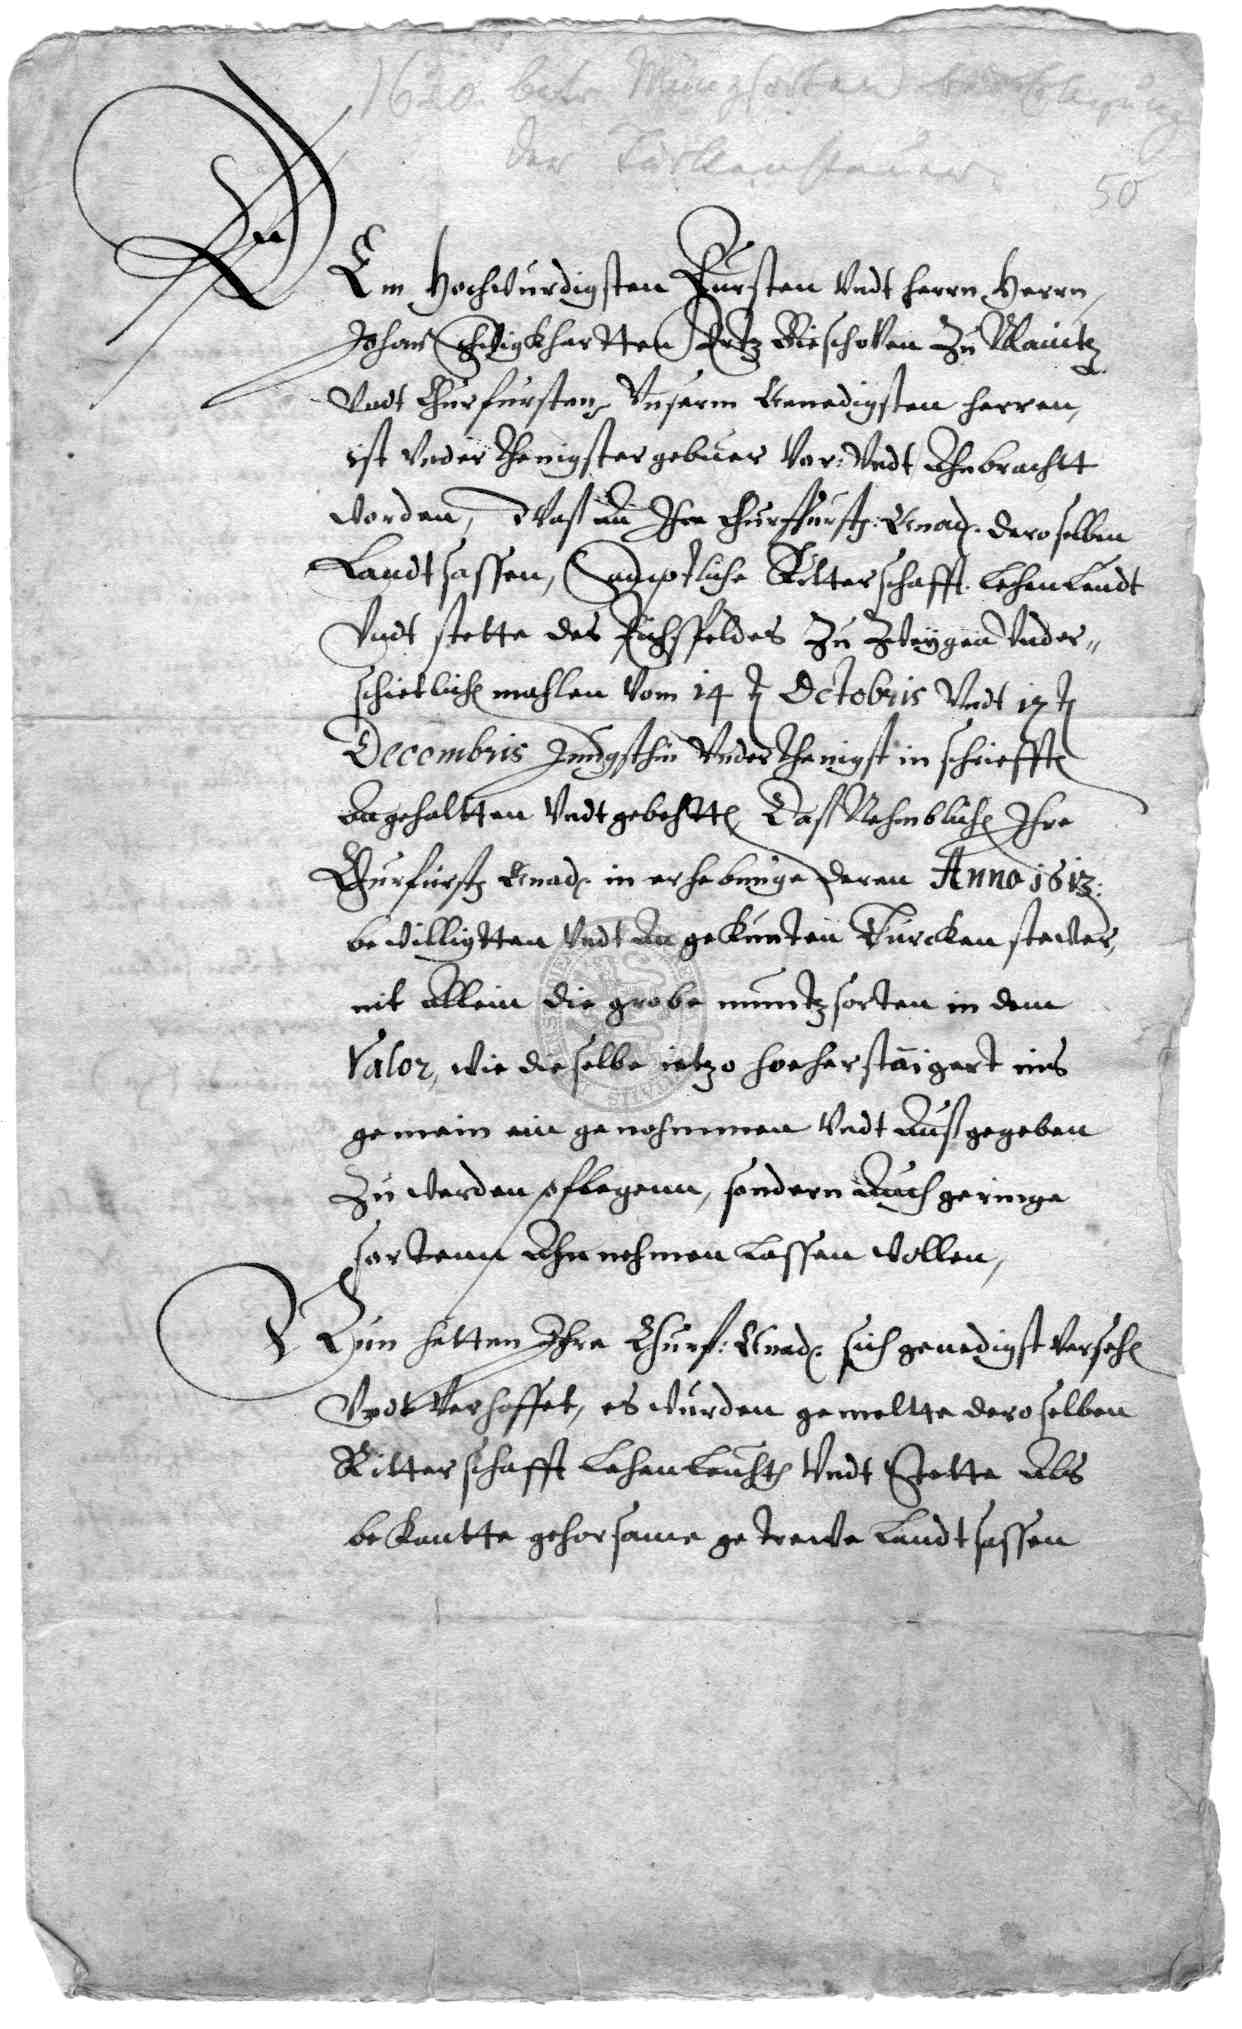 1620. betr. Müntzsorten
der Türkensteuer.
50
DEm Hochwurdigsten Fursten Vndt herrn, Herrn
Johan Schwigkhartten Ertz Bieschoven Zu Maintz
Vndt Churfursten, Vnserm Genedigsten herren,
ist Vnderthenigster gebuer Vor: Vndt Ahnbrachtt
worden, Waß an Ihre Churffurstl: Gnad. deroselben
Landtsassen, Samptliche Ritterschafft Lehenleudt
Vndt stette des Eichsfeldes Zu Zweyen Vnder=
schietlich mahlen Vom 14 t Octobris Vndt 17 t
Decembris Jungsthin Vnderthenigst in schriefft
Angehaltten Vndt gebehtt, Daß Nehmblich Ihre
Churfurstl Gnad. in erhebunge deren Anno 1613:
bewilligtten Vndt Angekunten Turckensteuer,
nit Allein die grobe muntzsorten in dem
Valor, wie dieselbe ietzo hoeherstaigert ins
gemein ein genohmmen Vndt Außgegeben
Zu werden pflegenn, sondern Auch geringe
sortenn Ahnnehmen lassen wollen,
Nun hetten Ihre Churf: Gnad. sich genedigst Verseh
Vndt Verhoffet, es wurden gemeltte deroselben
Ritterschafft Lehenleuht Vndt Stette Als
bekantte gehorsame getrewe Landtsassen